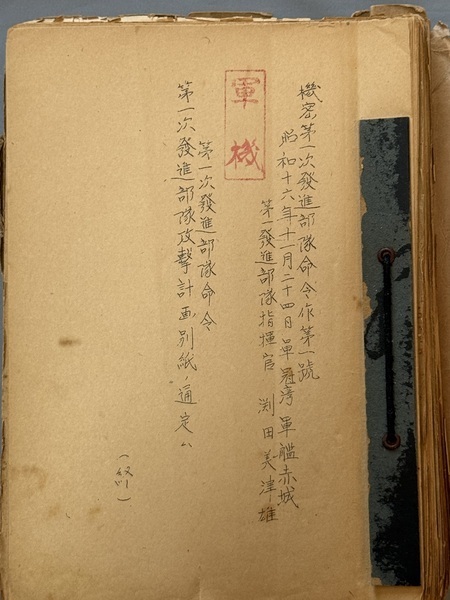 機密第一次發進部隊命令作第一號
昭和十六年十一月二十四日 單冠湾 軍艦赤城
第一發進部隊指揮官 渕田美津雄
軍機
第一次發進部隊命令
第一次發進部隊攻撃計画別紙ノ通定ム